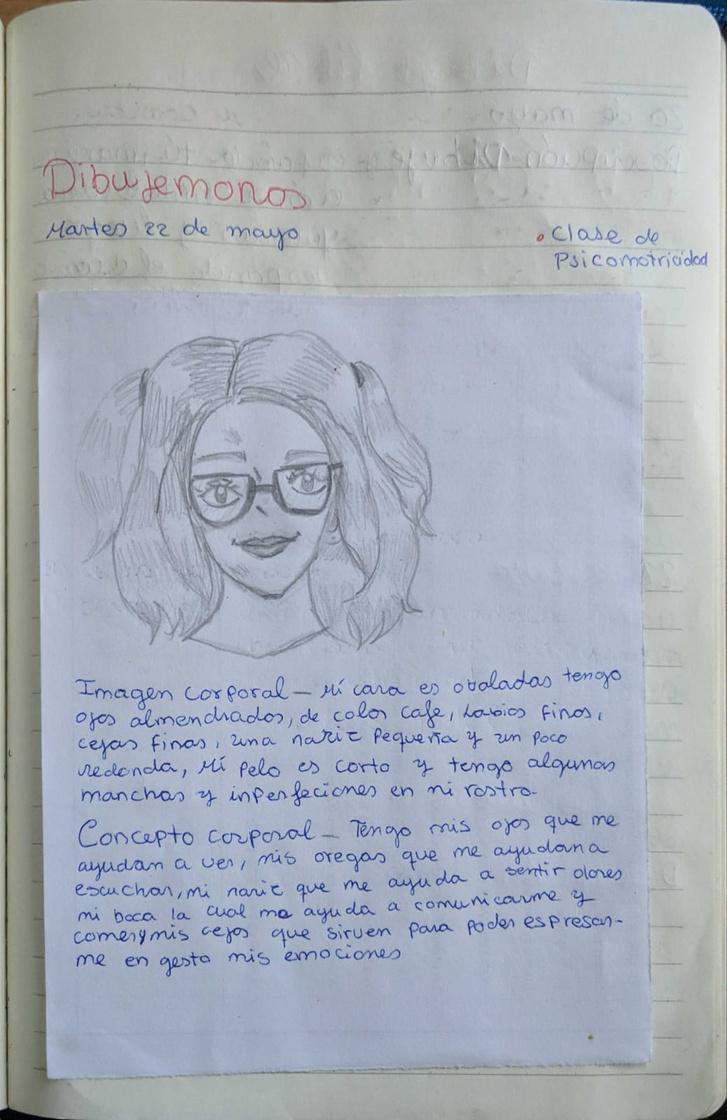 Dibujemonos
Martes 22 de mayo
• Clase de
Psicomotricidad
Imagen corporal - Mi cara es obaladas tengo
ojos almendrados, de color cafe, labios finos,
cejas finas, una nariz pequeña y un poco
redonda, Mi pelo es corto y tengo algunas
manchas y inperfeciones en mi rostro.
Concepto corporal - Tengo mis ojos que me
ayudan a ver, mis oregas que me ayudan a
escuchar, mi nariz que me ayuda a sentir olores
mi boca la cual me ayuda a comunicarme y
comer y mis cejas que sirven para poder espresar-
me en gesto mis emociones